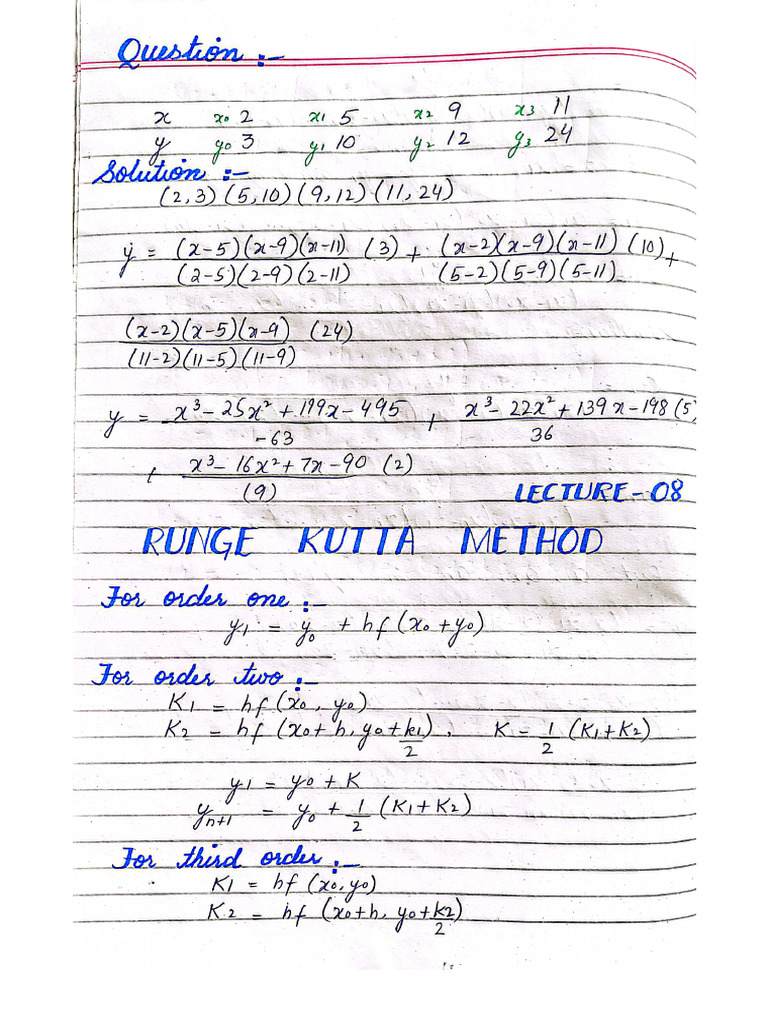 Question :-
x x0 2 x1 5 x2 9 x3 11
y y0 3 y1 10 y2 12 y3 24
Solution :-
(2,3) (5,10) (9,12) (11,24)
y = (x-5)(x-9)(x-11) (3) + (x-2)(x-9)(x-11) (10) +
(2-5)(2-9)(2-11) (5-2)(5-9)(5-11)
(x-2)(x-5)(x-9) (24)
(11-2)(11-5)(11-9)
y = x³-25x²+199x-495 + x³-22x²+139x-198 (5)
-63 36
+ x³-16x²+7x-90 (2)
(9)
LECTURE-08
RUNGE KUTTA METHOD
For order one :-
y1 = y0 + hf(x0+y0)
For order two :-
K1 = hf(x0, y0)
K2 = hf(x0+h, y0+k1/2), K = 1/2 (K1+K2)
y1 = y0 + K
yn+1 = y0 + 1/2 (K1+K2)
For third order :-
K1 = hf(x0,y0)
K2 = hf(x0+h, y0+k2/2)